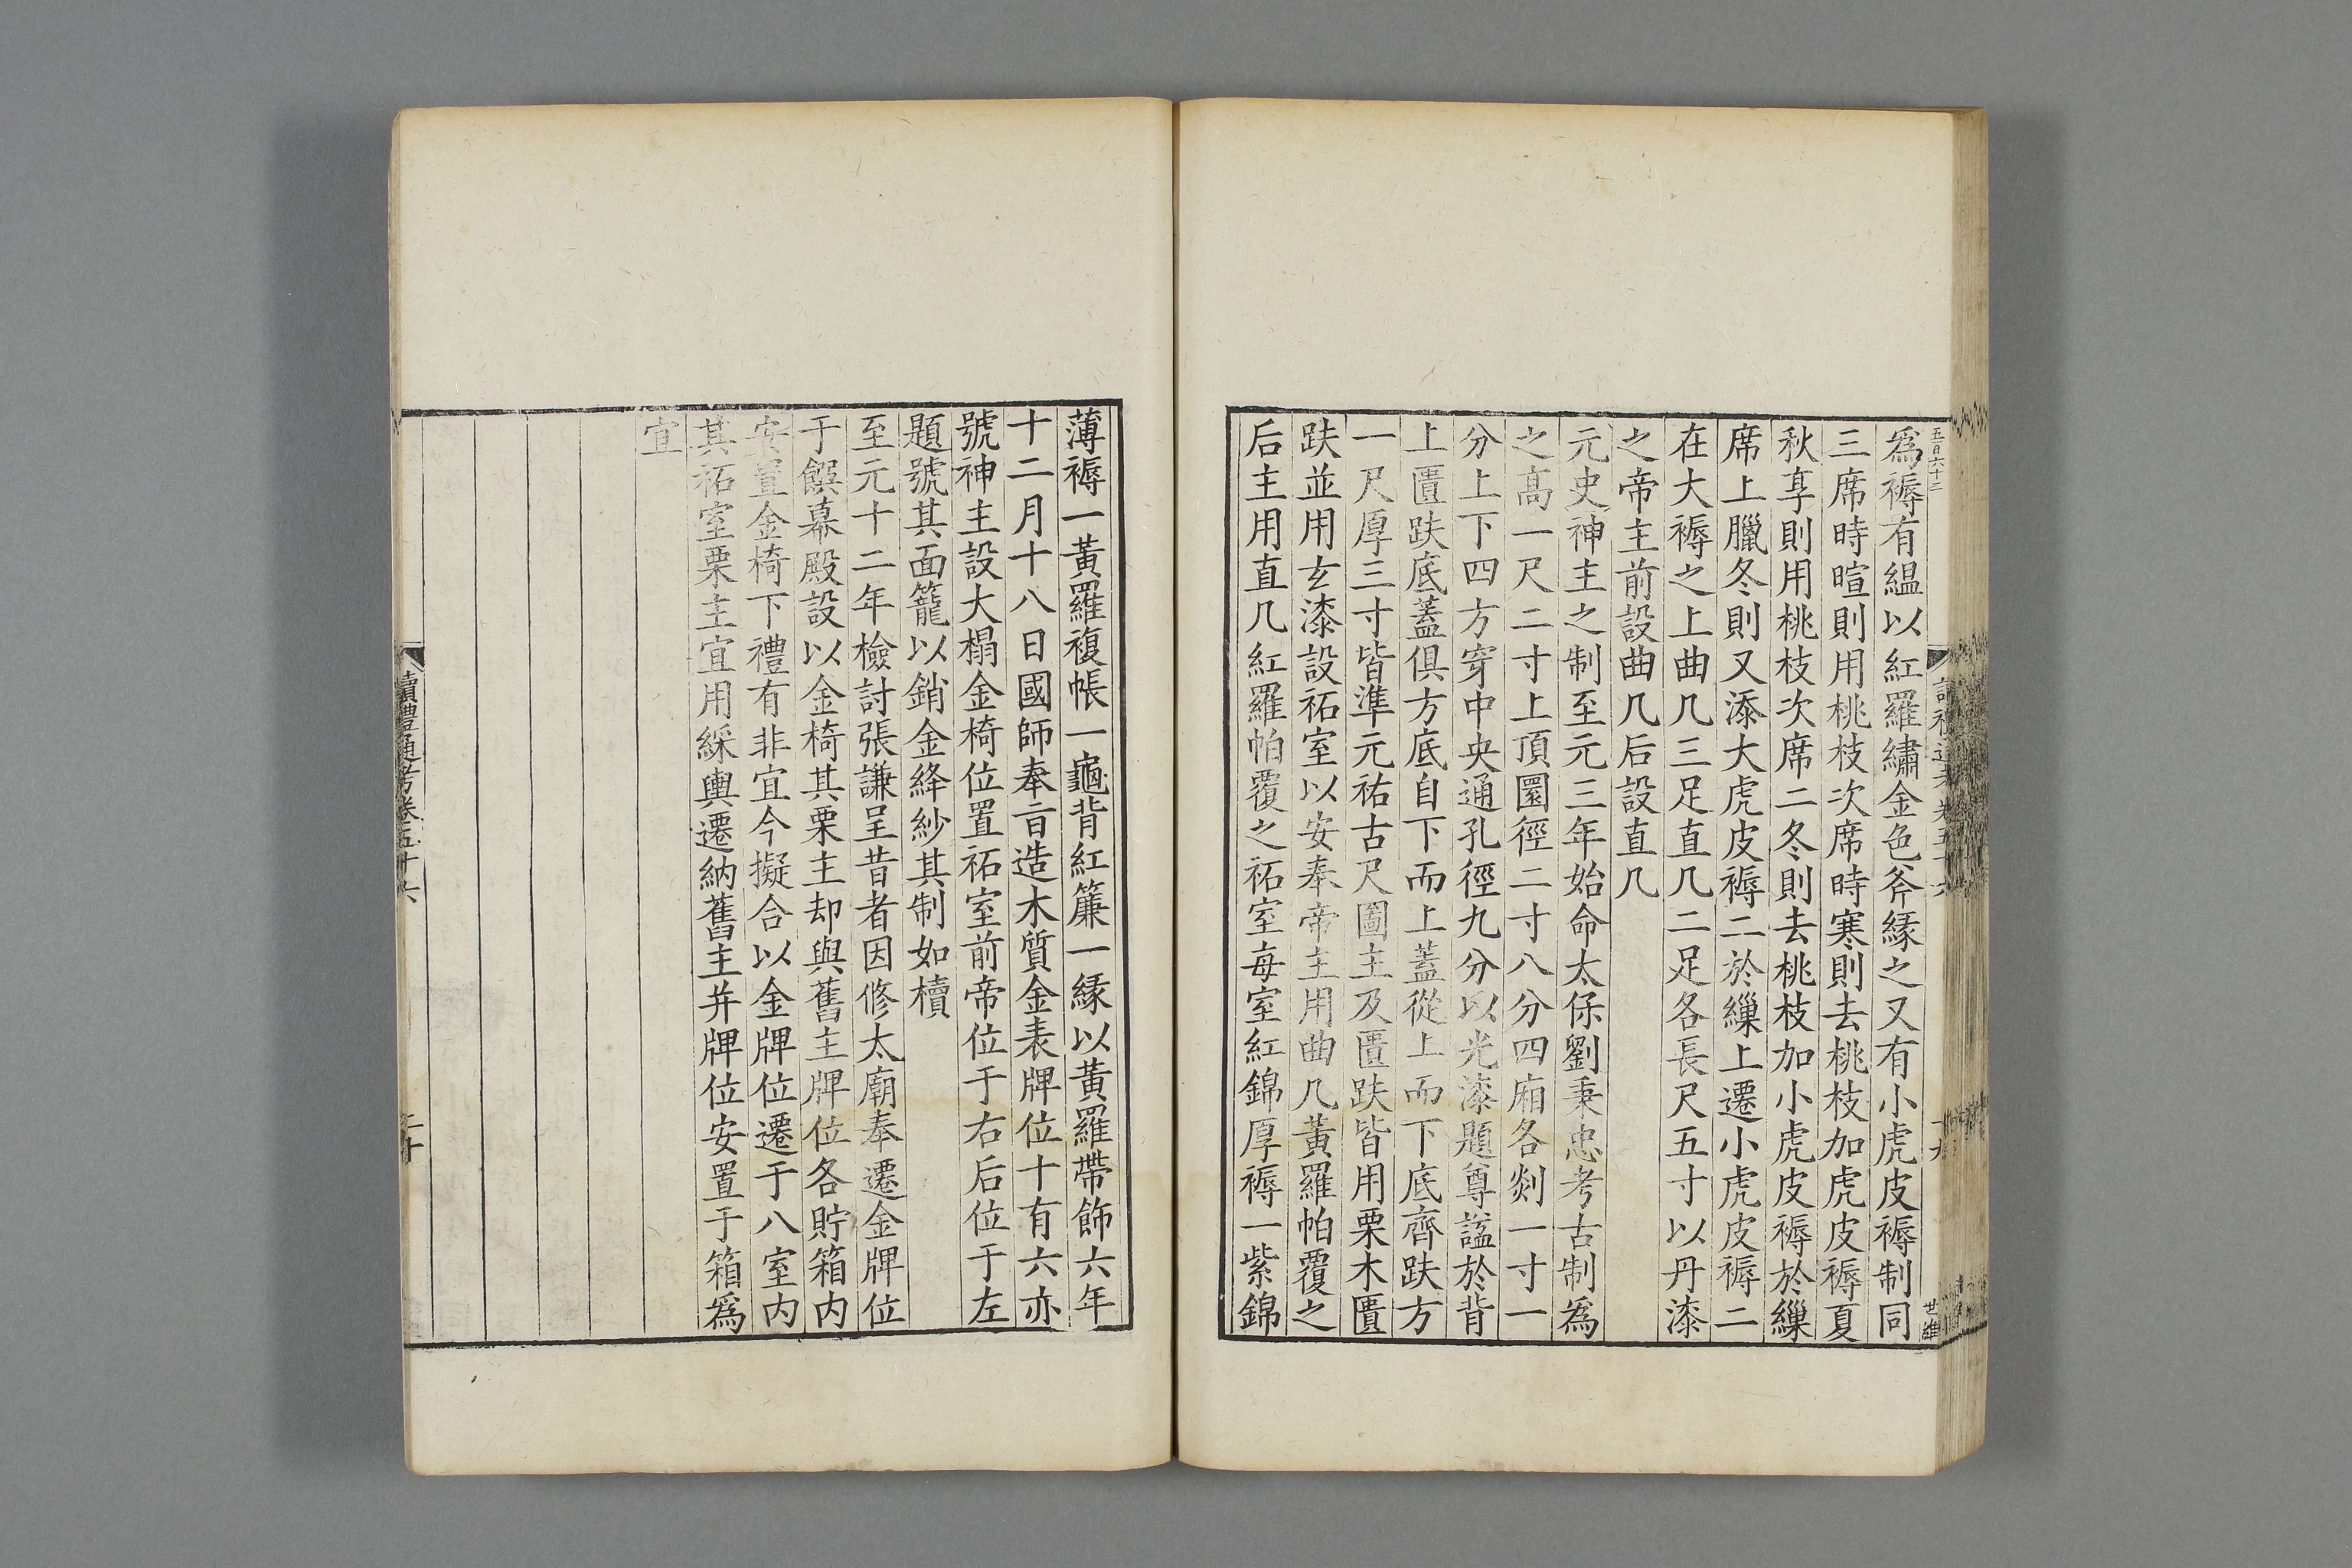 五百六十三
爲褥有緼以紅羅繡金色斧緣之又有小虎皮褥制同
三席時暄則用桃枝次席時寒則去桃枝加虎皮褥夏
秋享則用桃枝次席二冬則去桃枝加小虎皮褥於繅
席上臘冬則又添大虎皮褥二於繅上遷小虎皮褥二
在大褥之上曲几三足直几二足各長尺五寸以丹漆
之帝主前設曲几后設直几
元史神主之制至元三年始命太保劉秉忠考古制爲
之高一尺二寸上頂圜徑二寸八分四廂各剡一寸一
分上下四方穿中央通孔徑九分以光漆題尊謚於背
上匱趺底蓋俱方底自下而上蓋從上而下底齊趺方
一尺厚三寸皆準元祐古尺圖主及匱趺皆用栗木匱
趺並用玄漆設祏室以安奉帝主用曲几黃羅帕覆之
后主用直几紅羅帕覆之祏室每室紅錦厚褥一紫錦
薄褥一黃羅複帳一龜背紅簾一緣以黃羅帶飾六年
十二月十八日國師奉旨造木質金表牌位十有六亦
號神主設大榻金椅位置祏室前帝位于右后位于左
題號其面籠以銷金絳紗其制如櫝
至元十二年檢討張謙呈昔者因修太廟奉遷金牌位
于饌幕殿設以金椅其栗主却與舊主牌位各貯箱內
安置金椅下禮有非宜今擬合以金牌位遷于八室內
其祏室栗主宜用綵輿遷納舊主并牌位安置于箱爲
宜
讀禮通考卷五十六
二十